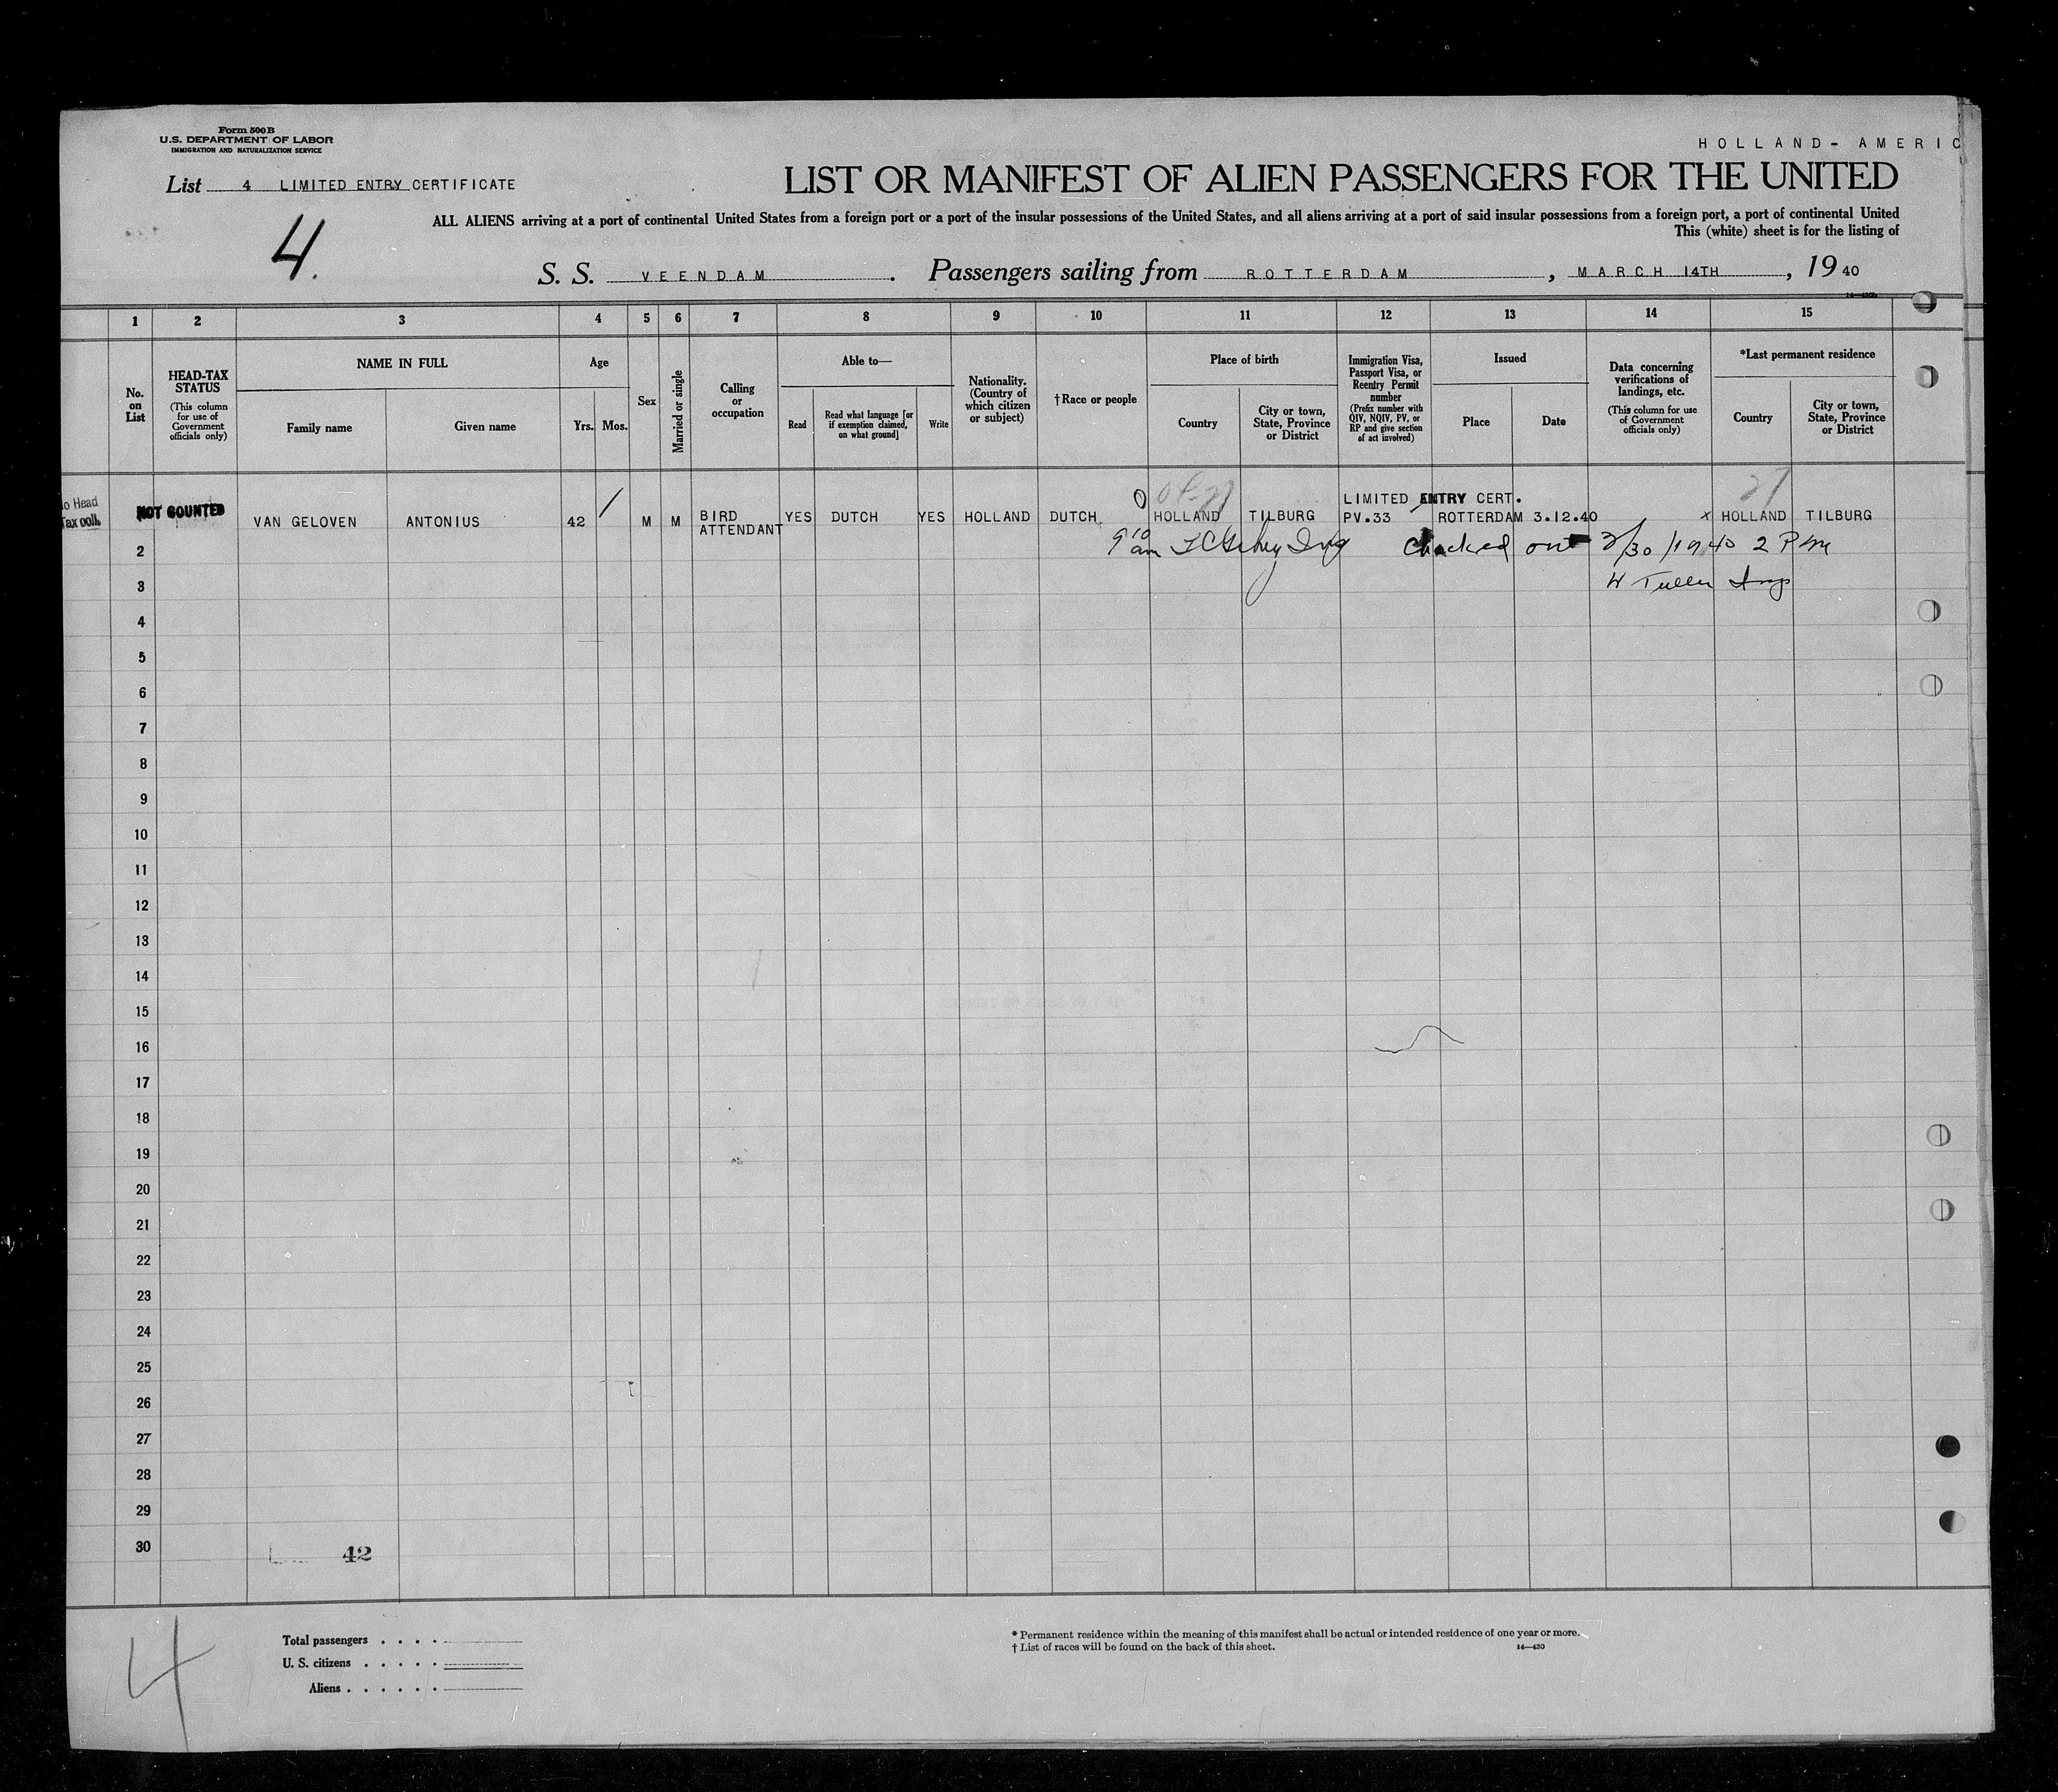 Form 500 B
U.S. DEPARTMENT OF LABOR
IMMIGRATION AND NATURALIZATION SERVICE
HOLLAND - AMERIC
List 4 LIMITED ENTRY CERTIFICATE
LIST OR MANIFEST OF ALIEN PASSENGERS FOR THE UNITED
4.
ALL ALIENS arriving at a port of continental United States from a foreign port or a port of the insular possessions of the United States, and all aliens arriving at a port of said insular possessions from a foreign port, a port of continental United
This (white) sheet is for the listing of
S. S. VEENDAM. Passengers sailing from ROTTERDAM, MARCH 14TH, 1940
1 2 3 4 5 6 7 8 9 10 11 12 13 14 15
No. on List
HEAD-TAX STATUS
(This column for use of Government officials only)
NAME IN FULL
Family name
Given name
Age
Yrs.
Mos.
Sex
Married or single
Calling or occupation
Able to—
Read
Read what language [or if exemption claimed, on what ground]
Write
Nationality. (Country of which citizen or subject)
†Race or people
Place of birth
Country
City or town, State, Province or District
Immigration Visa, Passport Visa, or Reentry Permit number
(Prefix number with QIV, NQIV, PV, or RP and give section of act involved)
Issued
Place
Date
Data concerning verifications of landings, etc.
(This column for use of Government officials only)
*Last permanent residence
Country
City or town, State, Province or District
o Head
Tax coll.
NOT COUNTED
LIMITED ENTRY CERT.
VAN GELOVEN ANTONIUS 42 M M BIRD ATTENDANT YES DUTCH YES HOLLAND DUTCH HOLLAND TILBURG PV.33 ROTTERDAM 3.12.40 x HOLLAND TILBURG
2 9 10 am Checked out 3/30/1940 2 Pm
3 W Tuller Insp
4
5
6
7
8
9
10
11
12
13
14
15
16
17
18
19
20
21
22
23
24
25
26
27
28
29
30
42
4
Total passengers . . . .
U. S. citizens . . . . .
Aliens . . . . . .
* Permanent residence within the meaning of this manifest shall be actual or intended residence of one year or more.
† List of races will be found on the back of this sheet. 14—430